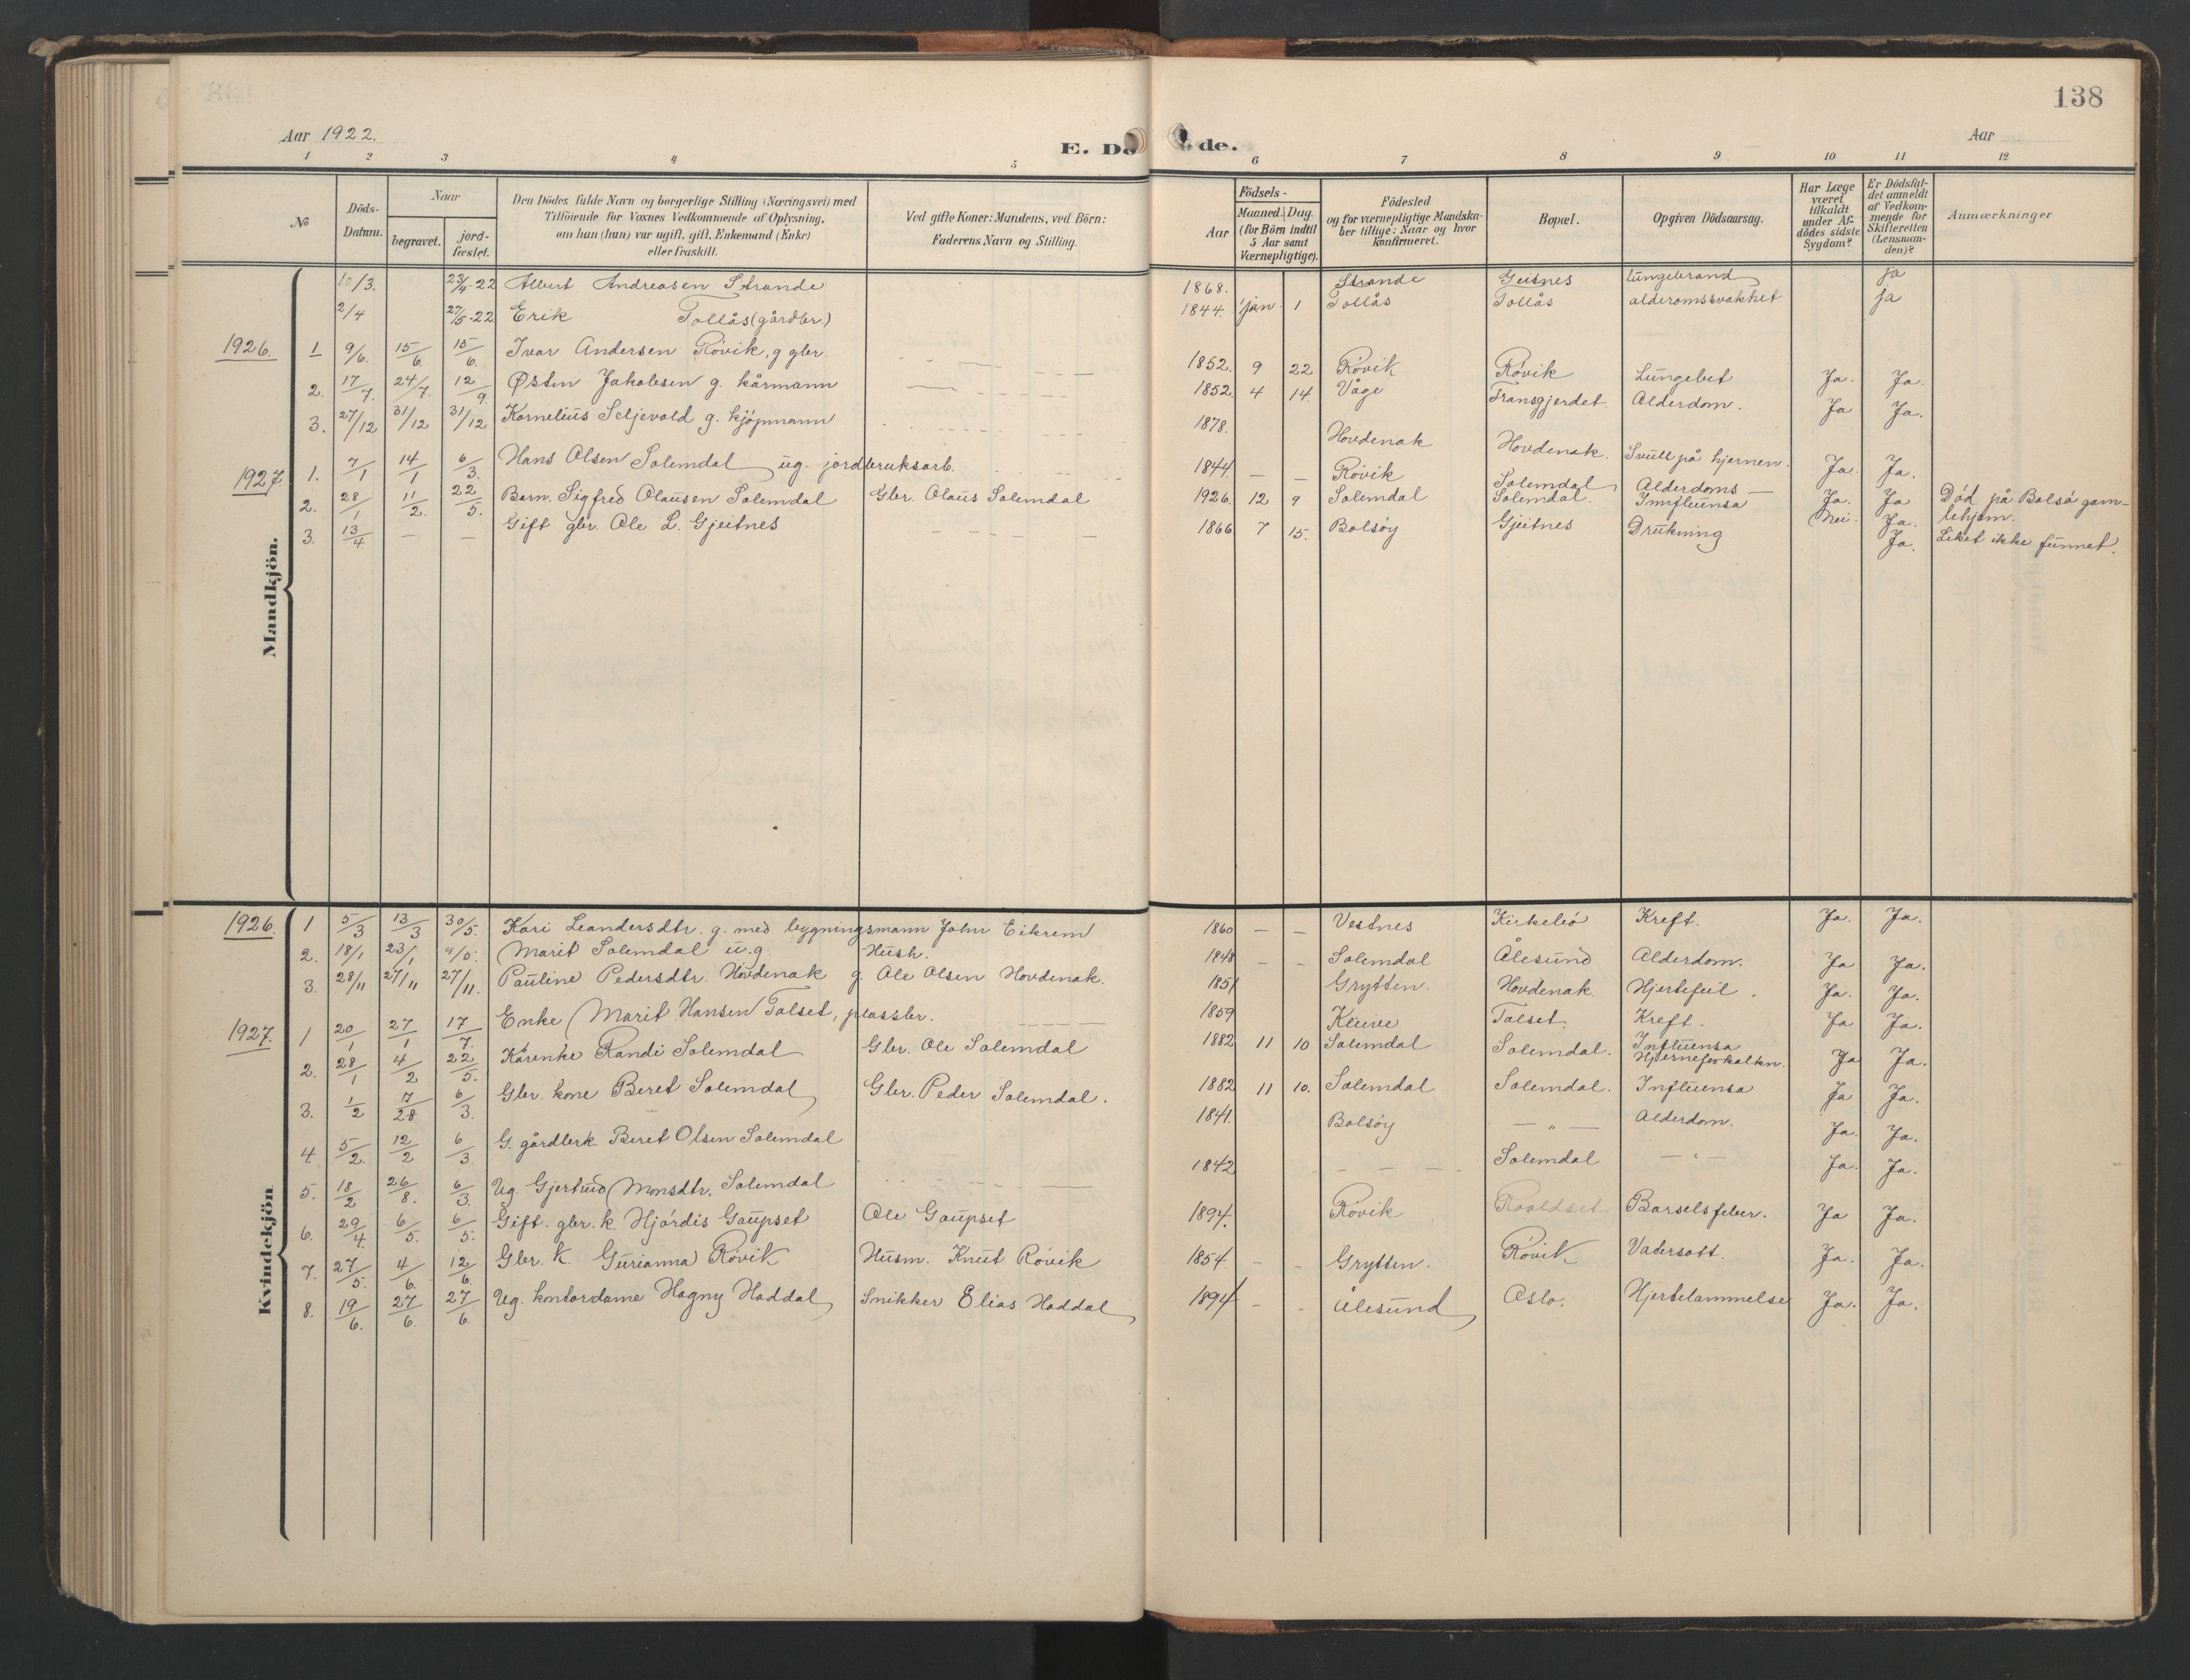 138
Aar 1922.
E. Dö de.
Aar
1 2 3 4 5 6 7 8 9 10 11 12
No
Döds-Datum.
Naar
begravet.
jord-fæstet.
Den Dödes fulde Navn og borgerlige Stilling (Næringsvei) med Tilföiende for Voxnes Vedkommende af Oplysning, om han (hun) var ugift, gift, Enkemand (Enke) eller fraskilt.
Ved gifte Koner: Mandens, ved Börn: Faderens Navn og Stilling.
Födsels-
Aar
Maaned. Dag.
(for Börn indtil 5 Aar samt Værnepligtige).
Födested og for værnepligtige Mandskaber tillige: Naar og hvor konfirmeret.
Bopæl.
Opgiven Dödsaarsag.
Har Læge været tilkaldt under Afdödes sidste Sygdom?
Er Dödsfaldet anmeldt af Vedkommende for Skifteretten (Lensmanden)?
Anmærkninger
Mandkjön.
10/3. 23/4-22 Albert Andreasen Strande 1868. Strande Geitnes lungebrand ja
2/4 27/5-22 Erik Tollås (gårdbr.) 1844. jan. 1 Tollås Tollås alderomssvakhet ja
1926. 1 9/6. 15/6. 15/6. Ivar Andersen Røvik, g gbr. 1852. 9 22 Røvik Røvik Lungebet Ja. Ja.
2. 17/7. 24/7. 12/9. Østen Jakobsen g. kårmann 1852. 4 14 Våge Transgjerdet. Alderdom. Ja Ja.
3. 27/12 31/12 31/12 Kornelius Seljevold g. kjøpmann 1878. Hovdenak Hovdenak. Svulst på hjernen. Ja. Ja.
1927. 1. 7/1 14/1 6/3. Hans Olsen Solemdal ug. jordbruksarb. 1844. — — Røvik Solemdal Alderdoms — Ja. Ja Død på Bolsø gamlehjem.
2. 28/1 11/2. 22/5. Barn. Sigfred Olausen Solemdal Gbr. Olaus Solemdal 1926. 12 9 Solemdal Solemdal. Imfluensa Nei. Ja.
3. 13/4 — — Gift gbr. Ole L. Gjeitnes 1866 7 15. Bolsøy Gjeitnes Drukning Ja. Liket ikke funnet.
Kvindekjön
1926. 1 5/3 13/3 30/5. Kari Leandersdtr. g. med bygningsmann John Eikrem 1860 — — Vestnes Kirkebø Kreft. Ja. Ja.
2. 18/1 23/1 9/5. Marit Solemdal u.g. Hush. 1848 — — Solemdal Ålesund Alderdom. Ja Ja.
3. 28/11 27/11 27/11. Pauline Pedersdtr. Hovdenak g. Ole Olsen Hovdenak. 1851 Grytten. Hovdenak. Hjertefeil. Ja. Ja.
1927. 1 20/1 27/1 17/7. Enke Marit Hansen Talset, plassbr. 1859 Kleive Talset. Kreft. Ja Ja.
2. 28/1 4/2 22/5. Kårenke Randi Solemdal Gbr. Ole Solemdal 1882 11 10 Solemdal Solemdal. Influensa Hjerneforkalkn. Ja Ja.
3. 1/2 17/28 6/3. Gbr. kone Beret Solemdal Gbr. Peder Solemdal. 1882 11 10. Solemdal Solemdal. Influensa Ja Ja.
4. 5/2. 12/2 6/3. G. gårdbrk. Beret Olsen Solemdal 1841. Bolsøy — " — Alderdom. Ja. Ja.
5. 18/2 26/8. 6/3. Ug. Gjertrud Monsdtr. Solemdal 1842 — — — Solemdal — " — Ja. Ja.
6. 29/4. 6/5. 6/5. Gift. gbr. k. Hjørdis Gaupset Ole Gaupset 1894. Røvik Roaldset Barselsfeber. Ja Ja.
7. 27/5. 4/6. 12/6. Gbr. K. Gurianna Røvik Husm. Knut Røvik 1854. - - Grytten. Røvik Vatersott. Ja. Ja.
8. 19/6. 27/6. 27/6. Ug. kontordame Hagny Haddal Snikker Elias Haddal 1894 - - Ålesund Oslo. Hjertelammelse Ja. Ja.